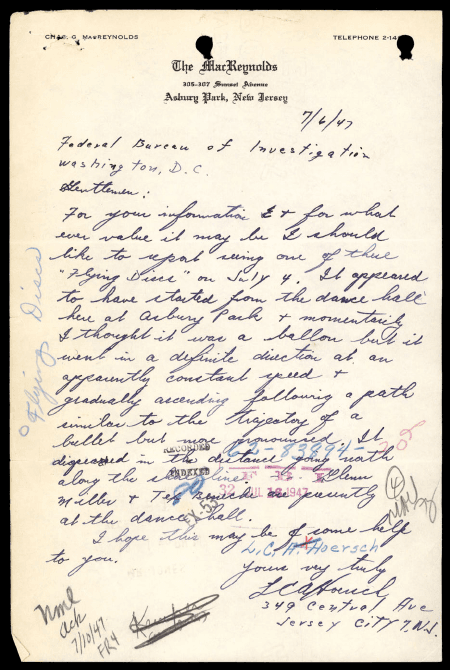 CHAS. G. MacREYNOLDS
TELEPHONE 2-14
The MacReynolds
305-307 Sunset Avenue
Asbury Park, New Jersey
7/6/47
Federal Bureau of Investigation
Washington, D. C.
Gentlemen:
For your information & for what
ever value it may be I should
like to report seeing one of these
"Flying Discs" on July 4. It appeared
to have started from the dance hall
here at Asbury Park & momentarily
I thought it was a ballon but it
went in a definite direction at an
apparently constant speed &
gradually ascending following a path
similar to the trajectory of a
bullet but more pronounced. It
in the distance going north
along the Glenn
Miller & Tex Beneke are presently
at the dance hall.
I hope this may be of some help
to you.
Yours very truly
349 Central Ave
Jersey City 7, N.J.
Flying Discs
RECORDED
INDEXED
62-83894-205
JUL 1947
EX-53
L. C. A. Hoersch
ack
7/10/47